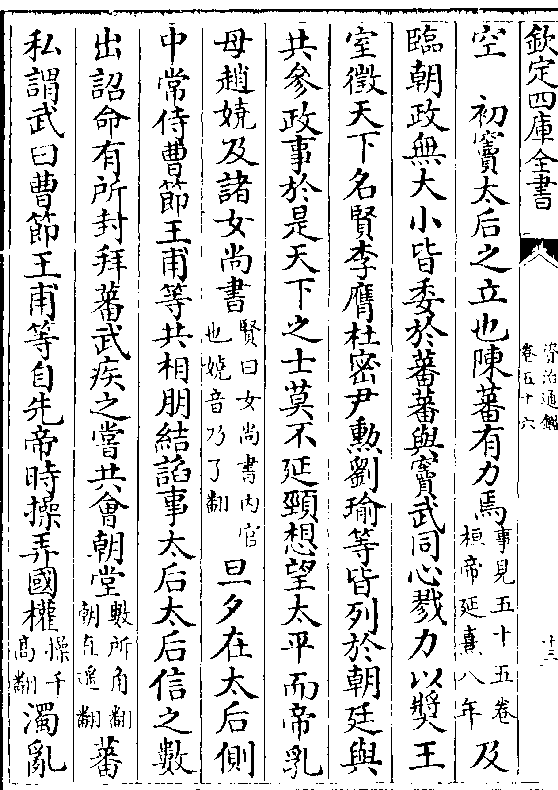 欽定四庫全書
資治通鑑
卷五十六
十三
空　初竇太后之立也陳蕃有力焉事見五十五卷桓帝延熹八年及
臨朝政無大小皆委於蕃蕃與竇武同心戮力以奬王
室徵天下名賢李膺杜密尹勲劉瑜等皆列於朝廷與
共參政事於是天下之士莫不延頸想望太平而帝乳
母趙嬈及諸女尚書賢曰女尚書内官也嬈音乃了翻旦夕在太后側
中常侍曹節王甫等共相朋結諂事太后太后信之數
出詔命有所封拜蕃武疾之嘗共會朝堂數所角翻朝直遥翻蕃
私謂武曰曹節王甫等自先帝時操弄國權操千髙翻濁亂